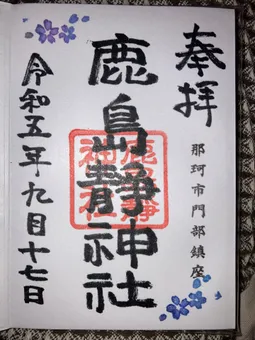 奉拝
那珂市門部鎮座
鹿島靜神社
令和五年九月十七日